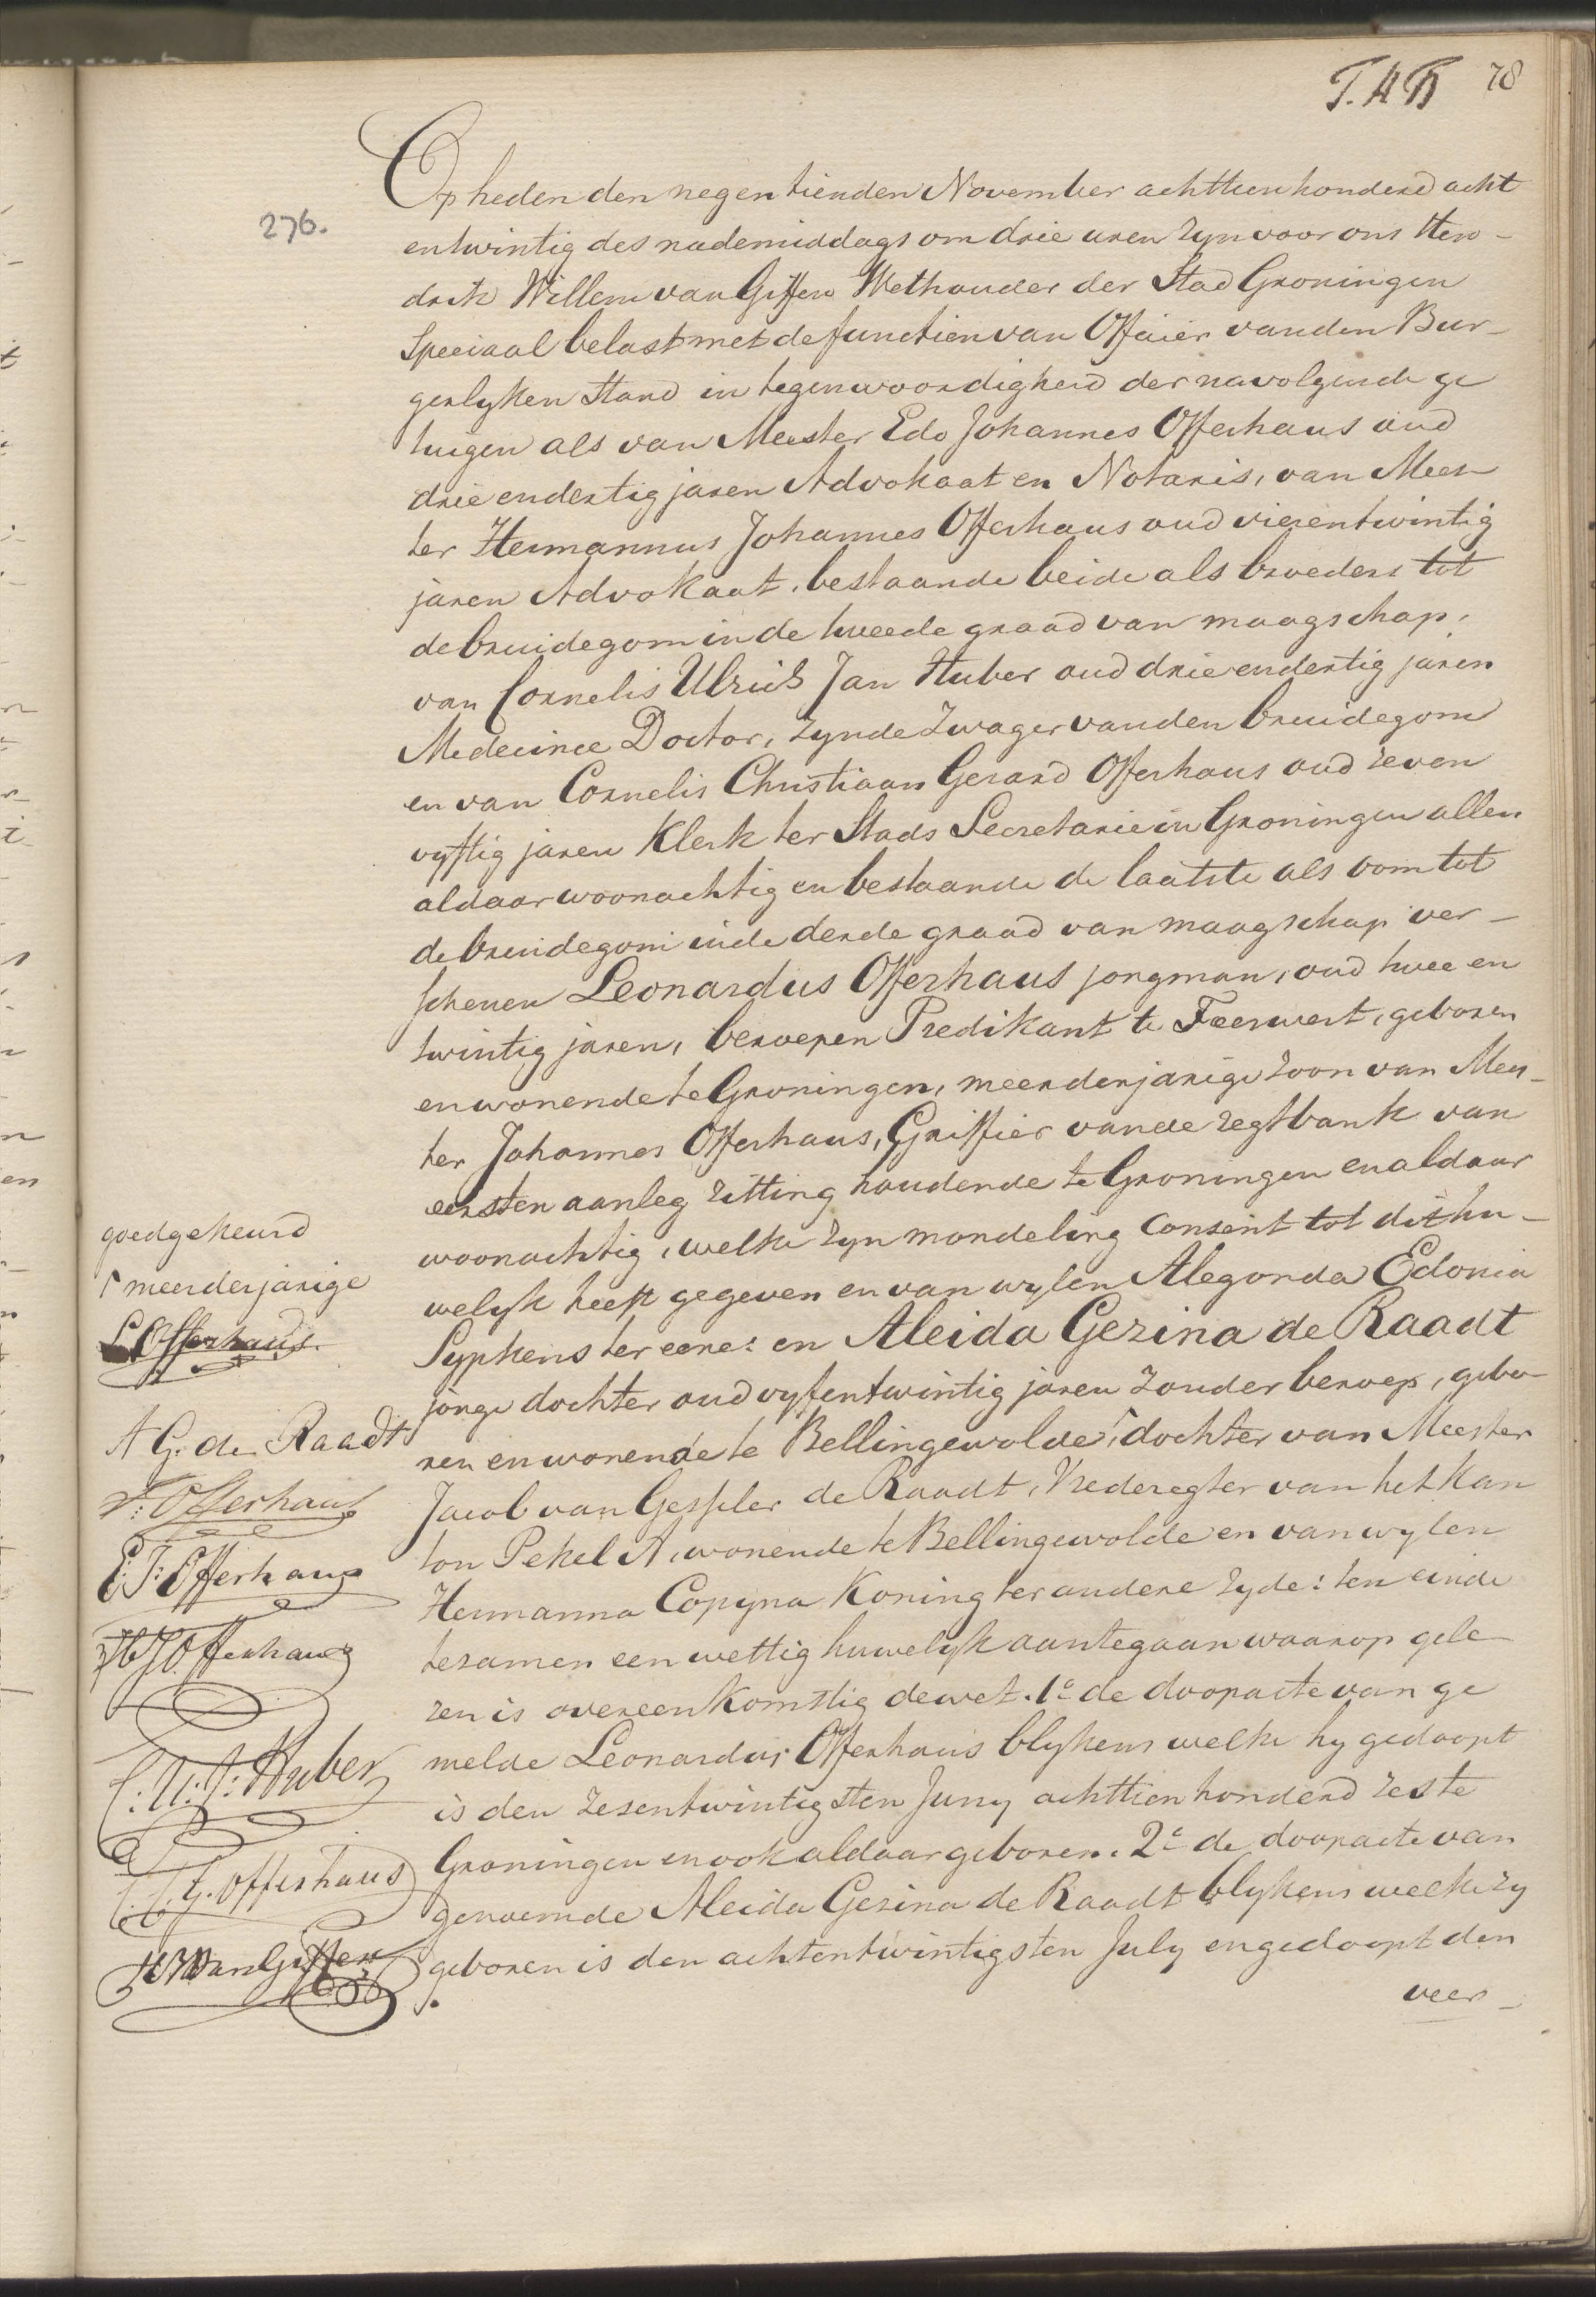 T.A.B 78
276.
Op heden den negentienden November achttienhonderd acht
entwintig des nademiddags om drie uren zyn voor ons Hen-
drik Willem van Giffen Wethouder der Stad Groningen
Speciaal belast met de functien van Officier van den Bur-
gerlyken Stand in tegenwoordigheid der navolgende ge
tuigen als van Meester Edo Johannes Offerhaus oud
drie endertig jaren Advokaat en Notaris, van Mees
ter Hermannus Johannes Offerhaus oud vierentwintig
jaren Advokaat, bestaande beide als broeders tot
de bruidegom in de tweede graad van maagschap,
van Cornelis Ulrich Jan Huber oud drieendertig jaren
Medecinee Doctor, zynde Zwager van den bruidegom
en van Cornelis Christiaan Gerard Offerhaus oud zeven
vyftig jaren Klerk ter Stads Secretarie in Groningen allen
aldaar woonachtig en bestaande de laatste als oom tot
de bruidegom in de derde graad van maagschap ver-
schenen Leonardus Offerhaus jongman, oud twee en
twintig jaren, beroepen Predikant te Feerwert, geboren
en wonende te Groningen, meerderjarige zoon van Mees-
ter Johannes Offerhaus, Griffier van de regtbank van
eersten aanleg zitting houdende te Groningen en aldaar
woonachtig, welke zyn mondeling Consent tot dit hu-
welyk heeft gegeven en van wylen Alegonda Edonia
Sypkens ter eene: en Aleida Gezina de Raadt
jonge dochter oud vyfentwintig jaren zonder beroep, gebo-
ren en wonende te Bellingewolde, ⌈dochter van Meester
Jacob van Gesseler de Raadt, Vrederegter van het Kan
ton Pekel A, wonende te Bellingewolde en van wylen
Hermanna Copyna Koning ter andere zyde: ten einde
tezamen een wettig huwelyk aantegaan waarop gele-
zen is overeenkomstig de wet. 1e de doopacte van ge
melde Leonardus Offerhaus blykens welke hy gedoopt
is den zesentwintigsten Juny achttien honderd zes te
Groningen en ook aldaar geboren. 2e de doopacte van
genoemde Aleida Gezina de Raadt blykens welke zy
geboren is den achtentwintigsten July en gedoopt den
veer-
goedgekeurd
⌈ meerderjarige
L Offerhaus.
A G. de Raadt
J: Offerhaus
E: J: Offerhaus
H J Offerhaus
C: U: J: Huber
C. C. G. Offerhaus
H W van Giffen